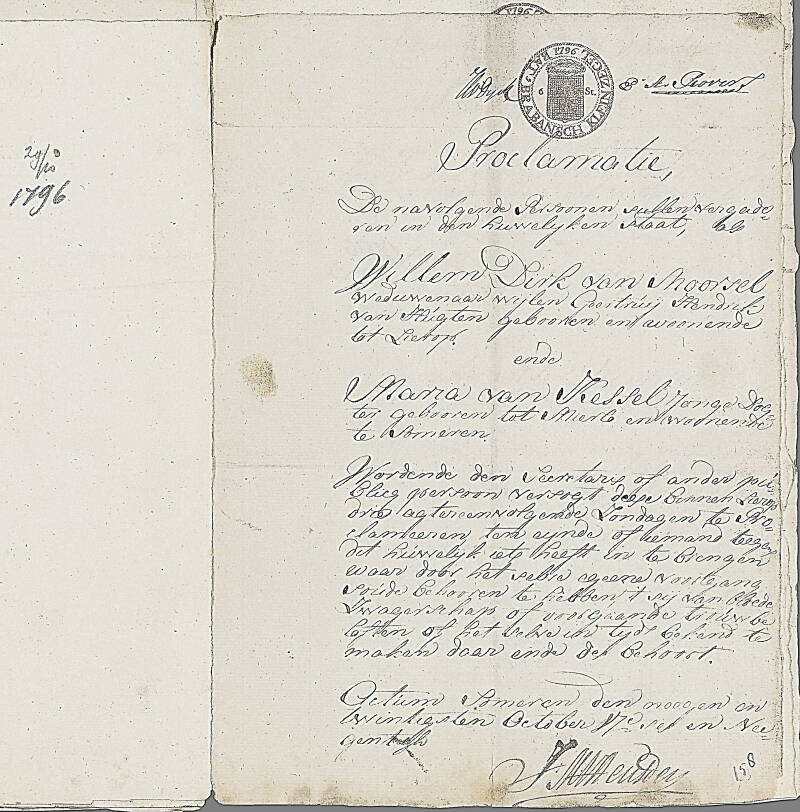 1796
29/10
1796
BAT: BRABANSCH KLEIN ZEGEL
1796
6 St.
Proclamatie,
De navolgende Persoonen sullen vergade-
ren in den huwelyken staat, als
Willem Dirk van Moorsel
Weduwenaar wijlen Geertruij Hendrik
van Hugten gebooren en woonende
tot Lierop.
ende
Maria van Kessel Jonge Dog-
ter gebooren tot Merlo en woonende
te Someren
Wordende den Secretaris of ander pu-
blicq persoon versogt deese binnen Lierop
drie agtereenvolgende Zondagen te Pro-
clameeren, ten eynde of iemand teegen
dit huwelijk iets heeft in te brengen
waar door het selve egeene voortgang
soude behooren te hebben 't sij van bloede
Zwagerschap of voorgaande trouwbe-
loften of het selve in tyds bekend te
maken daar ende des behoort.
Actum Someren den neegen en
twintigsten October 17c ses en Nee-
gentigh
158